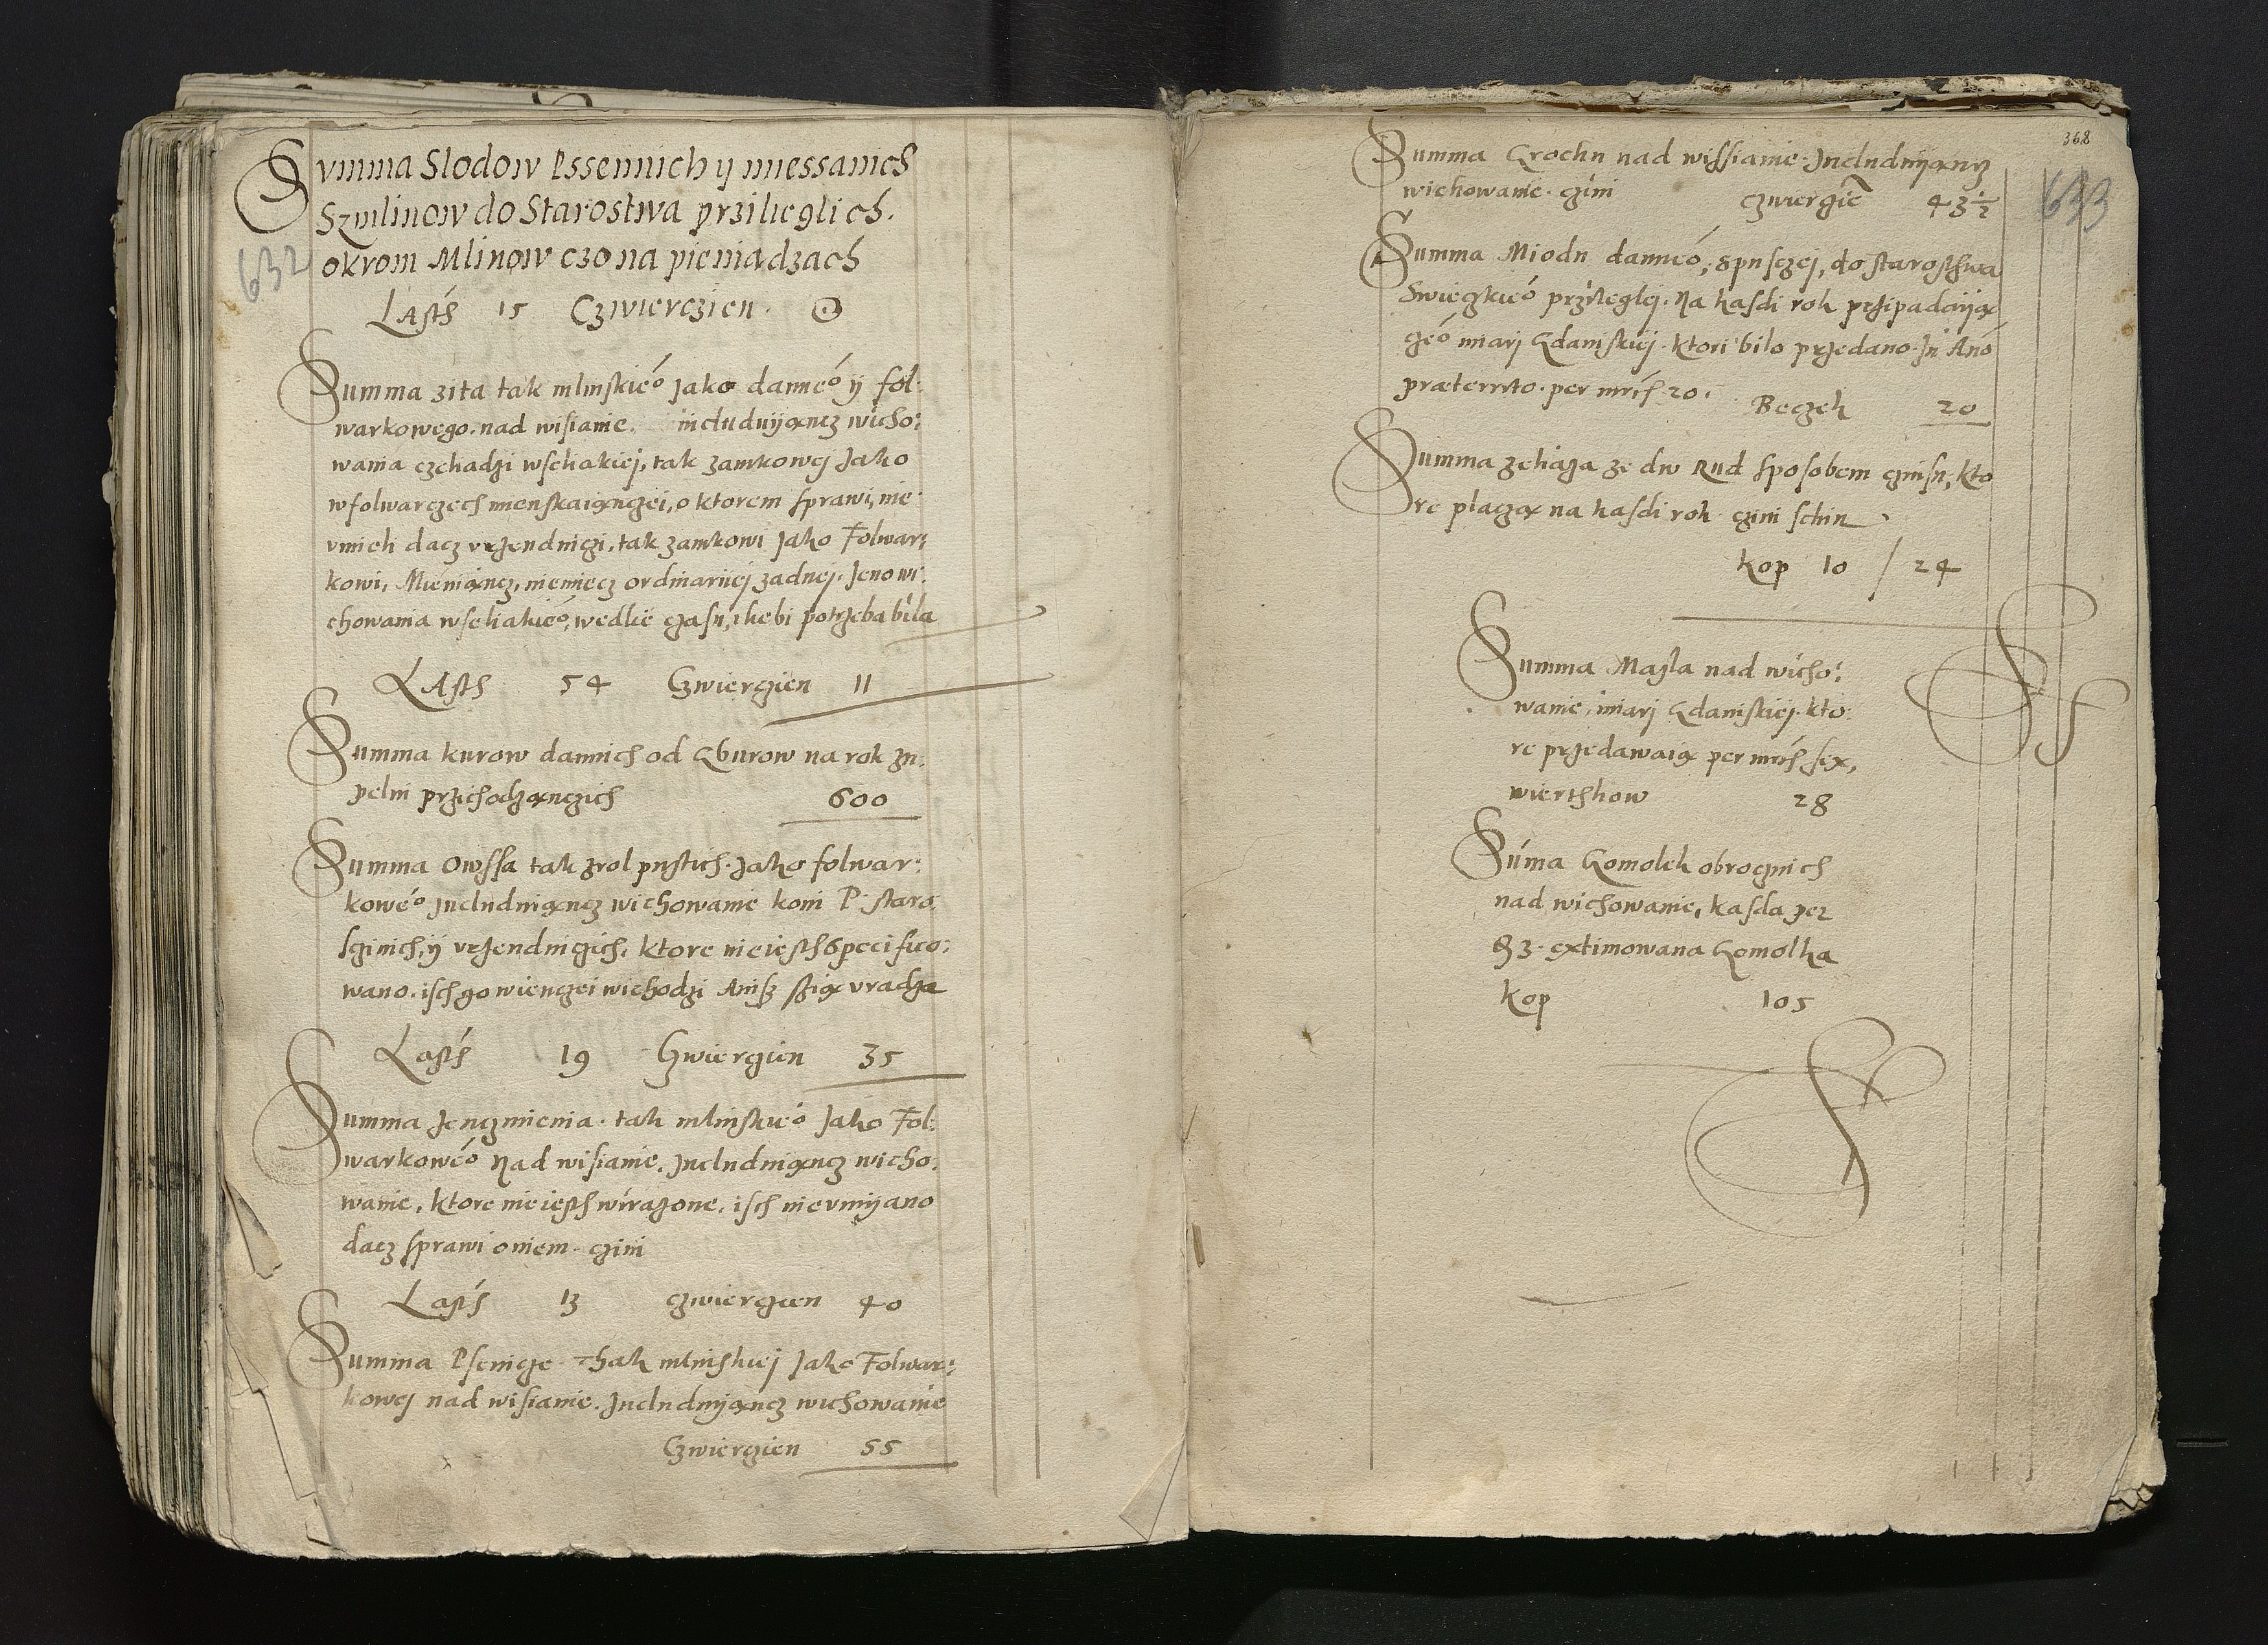 Summa Slodow Pssennich y miessanich
Szmlinow do Starostwa przileglich.
okrom Mlinow czo na pieniadzach
632
Lasth 15 Czwierczien.
Summa zita tak mlinskieo Jako danneo y fol:
warkowego. nad wisianie. includuyancz wicho:
wania czeliadzi wseliakiej, tak zamkowej Jako
w folwarczech mieskaianczei, o ktorem sprawi, nie
vmieli dacz vrzendniczi, tak zamkowi Jako Folwar:
kowi, Mieniancz, niemiecz ordinariiej zadnej. Jeno wi:
chowania wseliakieo, wedlie czasu, ikebi potrzeba bila
Lasth 54 Czwierczien 11
Summa kurow dannich od Gburow na rok zu:
pelni przichodzanczich 600
Summa Owssa tak zrol pustich. Jako folwar:
koweo Includuiancz wichowanie koni P. staro:
sczinich, y vrzendniczich, ktore nie iesth specifico:
wano. isch go wienczei wichodzi Anisz sziα vradza
Lasth 19 Czwierczien 35
Summa Jenczmienia. tak mlinskieo Jako Fol:
warkoweo Nad wisianie. Includuiancz wicho:
wanie, ktore nie iesth wirazone. isch nie vmijano
dacz sprawi oniem. czini
Lasth 13 czwierczien 40
Summa Psenicze Thak mlinskiej Jako Folwar:
kowej nad wisianie. Includuyancz wichowanie
Czwierczien 55
368
Summa Grochu nad wissianie. Includuyancz
wichowanie. czini czwierczie 43 1/2
633
Summa Miodu danneo, spusczej, do starosthwa
Swieczkieo przileglej. Na kasdi rok przipadaiα
czeo miarj Gdanskiej. ktori bilo przedano. In Ano
præterito. per mrcis 20. Beczek 20
Summa zeliaza ze dw Rud sposobem czinsu, kto
re placzα na kasdi rok czini schin
kop 10 / 24
Summa Masla nad wicho:
wanie, miarj Gdanskiej. kto:
re przedawaiα per mrcis sex,
wierthkow 28
Suma Gomolek obrocznich
nad wichowanie, kasda per
ß 3. extimowana Gomolka
kop 105